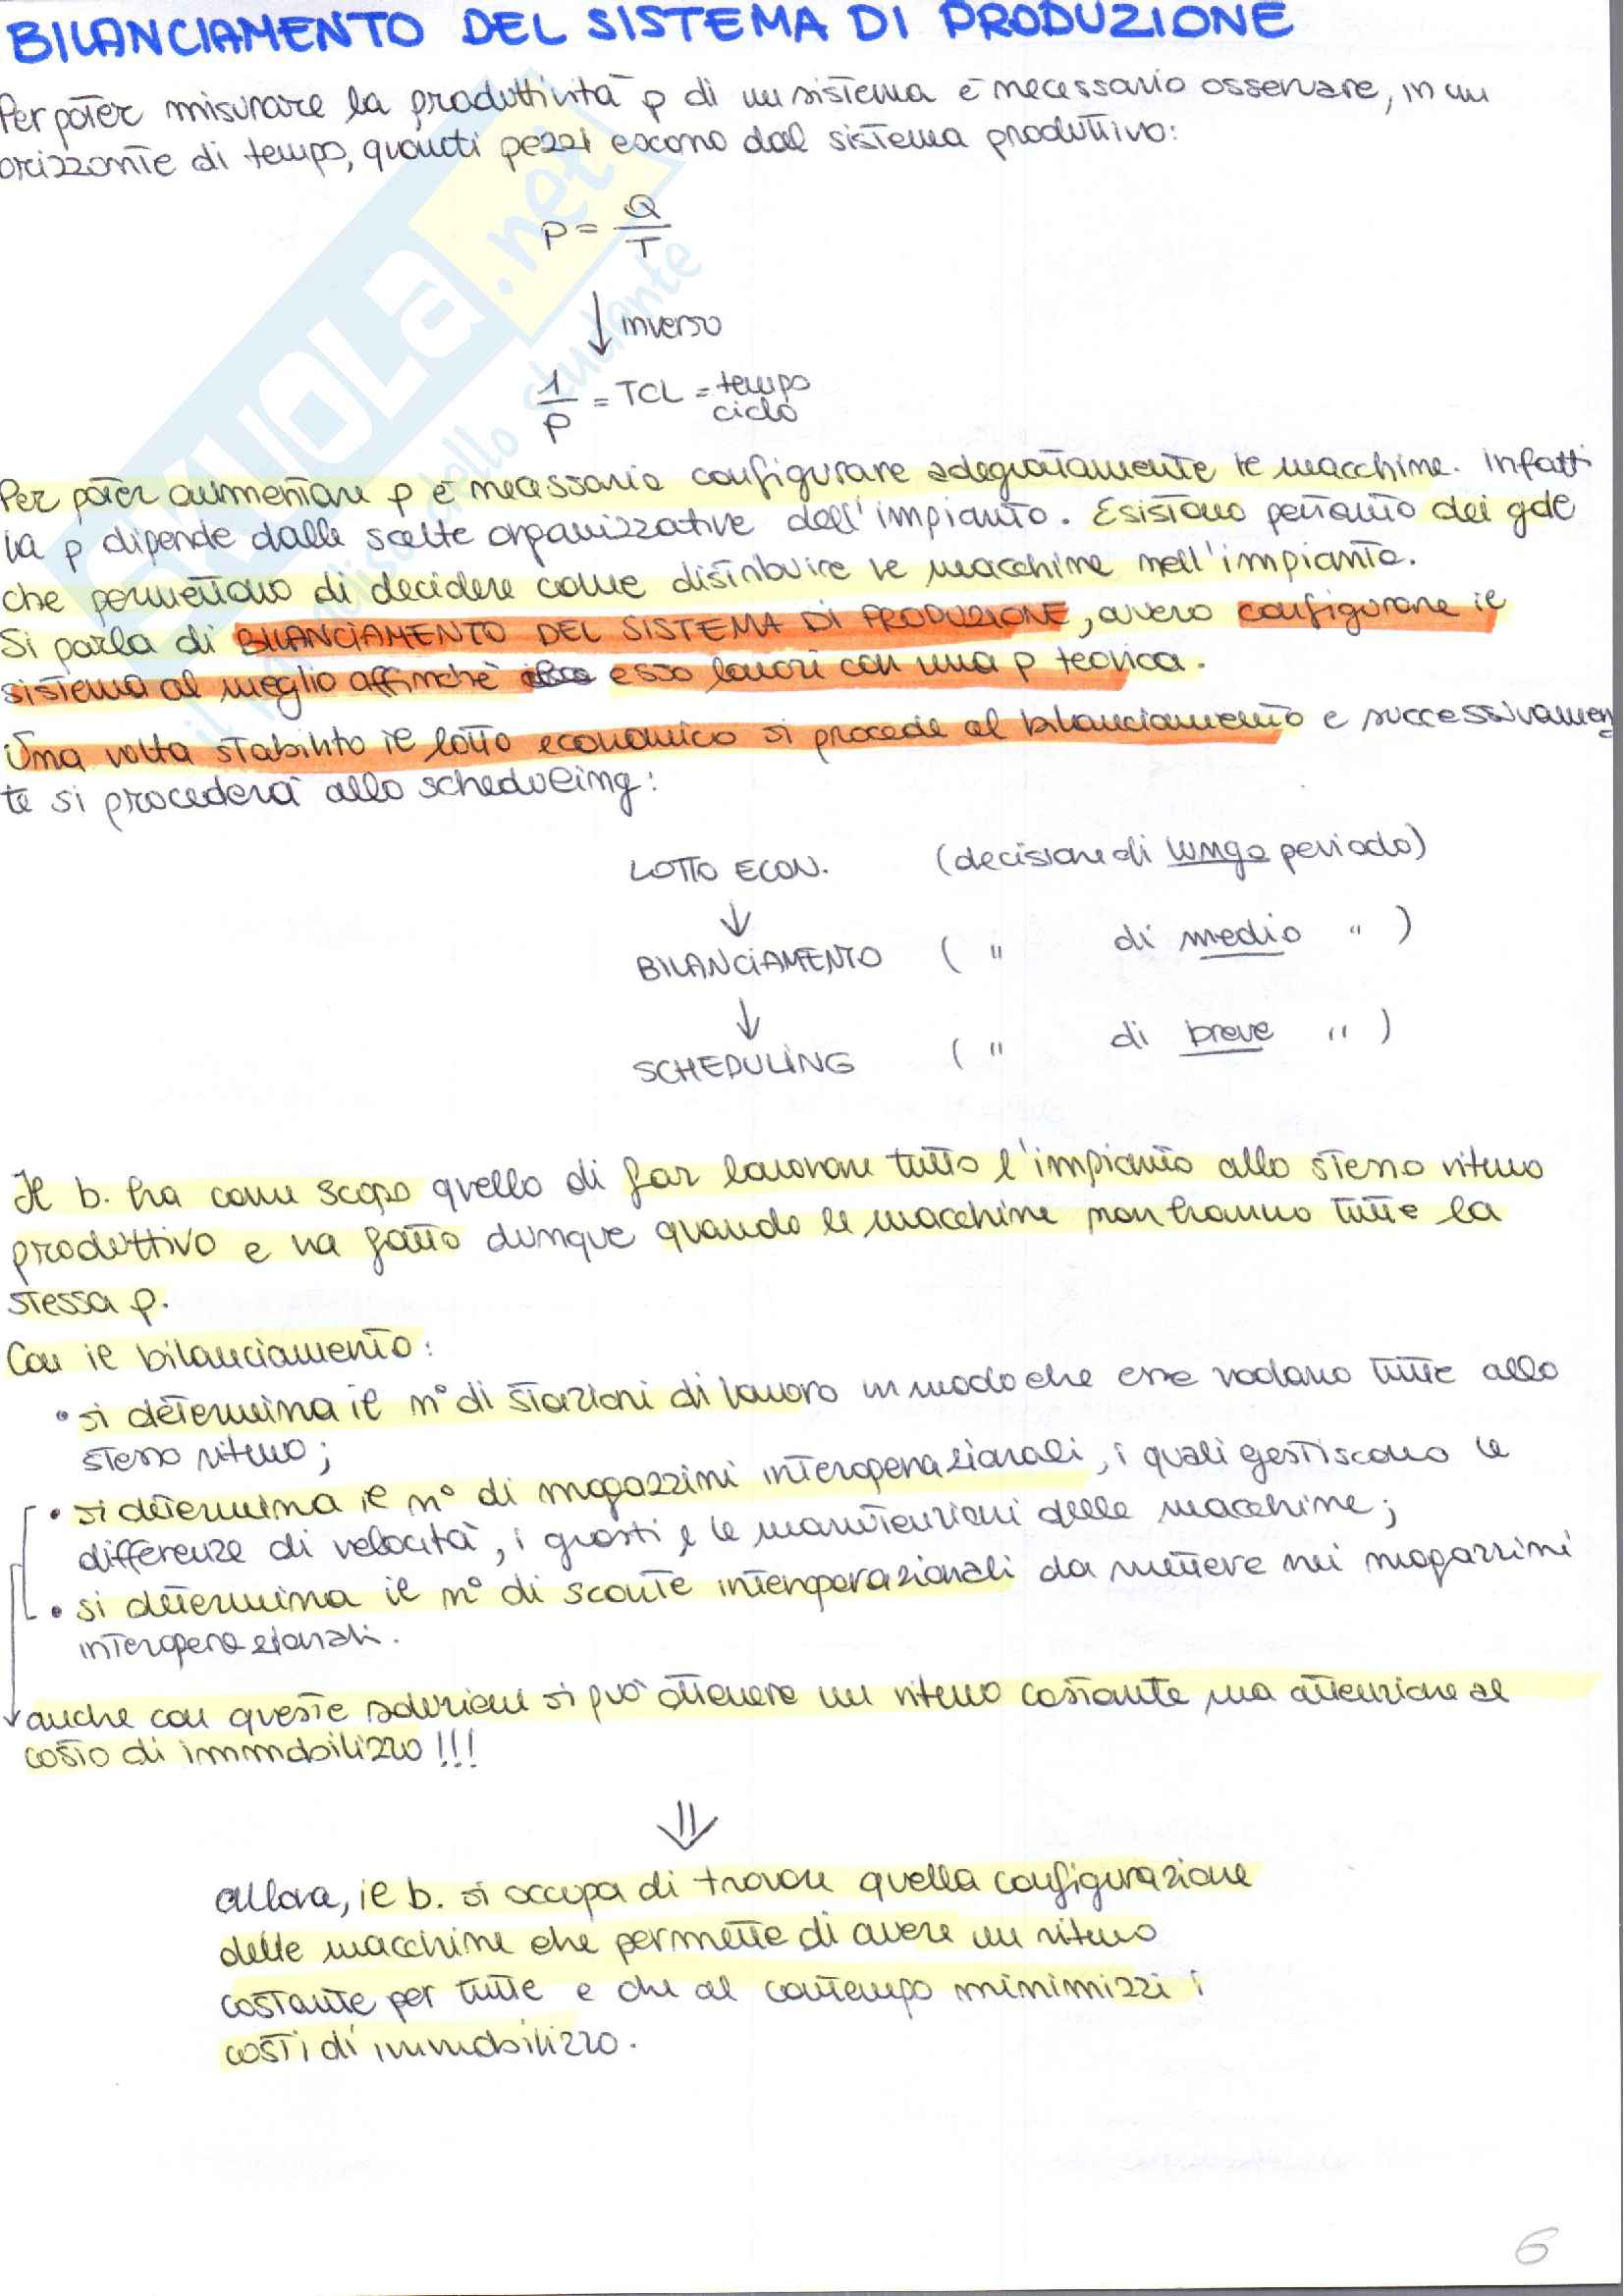 BILANCIAMENTO DEL SISTEMA DI PRODUZIONE
Per poter misurare la produttività p di un sistema è necessario osservare, in un
orizzonte di tempo, quanti pezzi escono dal sistema produttivo:
p = Q/T
↓ inverso
1/p = TCL = tempo ciclo
Per poter aumentare p è necessario configurare adeguatamente le macchine. Infatti
la p dipende dalle scelte organizzative dell'impianto. Esistono pertanto dei gde
che permettono di decidere come distribuire le macchine nell'impianto.
Si parla di BILANCIAMENTO DEL SISTEMA DI PRODUZIONE, ovvero configurare il
sistema al meglio affinchè esso lavori con una p teorica.
Una volta stabilito il lotto economico si procede al bilanciamento e successivamen
te si procederà allo scheduling:
LOTTO ECON. (decisione di lungo periodo)
↓
BILANCIAMENTO ( " di medio " )
↓
SCHEDULING ( " di breve " )
Il b. ha come scopo quello di far lavorare tutto l'impianto allo stesso ritmo
produttivo e va fatto dunque quando le macchine non hanno tutte la
stessa p.
Con il bilanciamento:
• si determina il n° di stazioni di lavoro in modo che esse vadano tutte allo
stesso ritmo;
• si determina il n° di magazzini interoperazionali, i quali gestiscono le
differenze di velocità, i guasti e le manutenzioni delle macchine;
• si determina il n° di scorte interoperazionali da mettere nei magazzini
interoperazionali.
anche con queste soluzioni si può ottenere un ritmo costante ma attenzione al
costo di immobilizzo!!!
⇓
allora, il b. si occupa di trovare quella configurazione
delle macchine che permette di avere un ritmo
costante per tutte e che al contempo minimizzi i
costi di immobilizzo.
6
SKUOLA.net
il paradiso dello studente